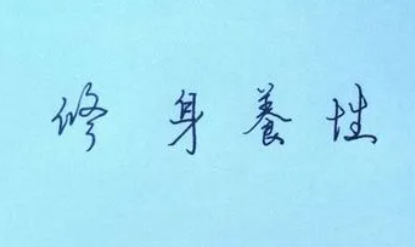 修身養性